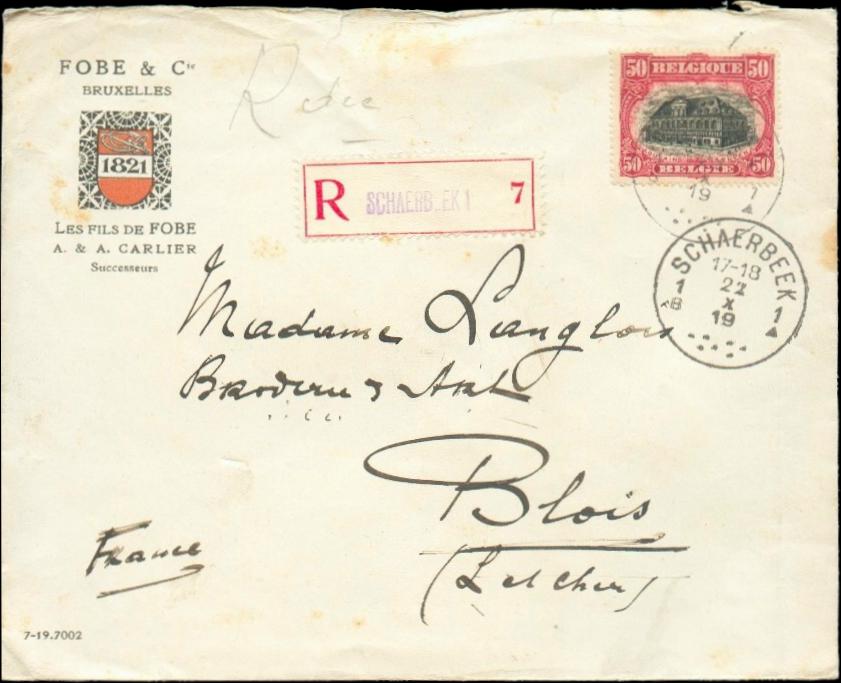 FOBE & Cie
BRUXELLES
1821
LES FILS DE FOBE
A. & A. CARLIER
Successeurs
R
50 BELGIQUE 50
50 BELGIË 50
X
19
1
R SCHAERBEEK 1 7
SCHAERBEEK 1
17-18
22
X
19
1
B
Madame Langlois
Broderies d'Art
Blois
(L et Cher)
France
7-19.7002